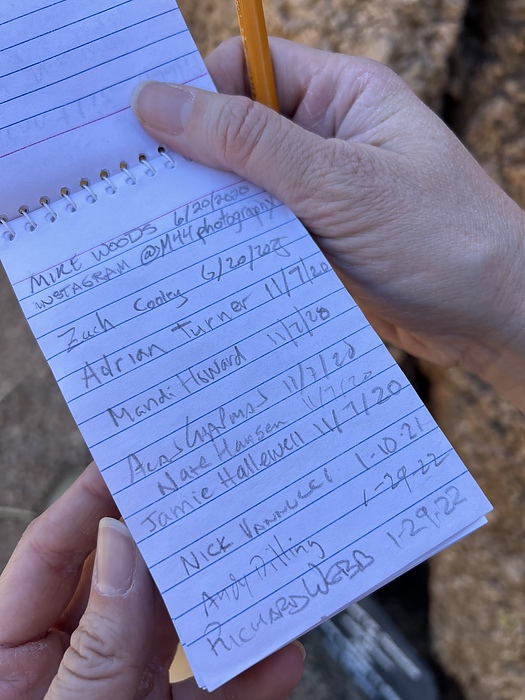 MIKE WOODS 6/20/2020
INSTAGRAM @M44photography
Zach Cooley 6/20/202
Adrian Turner 11/7/20
Mandi Howard 11/7/20
11/7/20
Nate Hansen 11/7/20
Jamie Hallewell 11/7/20
NICK VANNUCCI 1-10-21
Andy Dilling 1-29-22
RICHARD WEBB 1-29-22